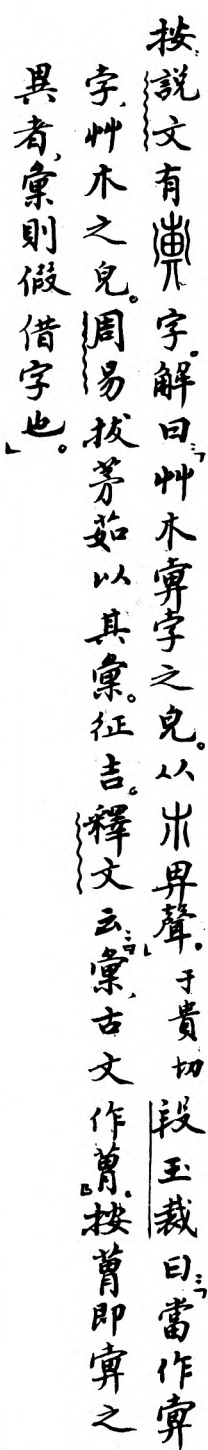 按：說文有𢑥字。解曰：「艸木㝮孛之皃。从𣎵畀聲。于貴切」段玉裁曰：「當作㝮
孛，艸木之皃。周易拔茅茹以其彙。征吉。釋文云：『彙，古文作𦳢。』按𦳢即㝮之
異者，彙則假借字也。」